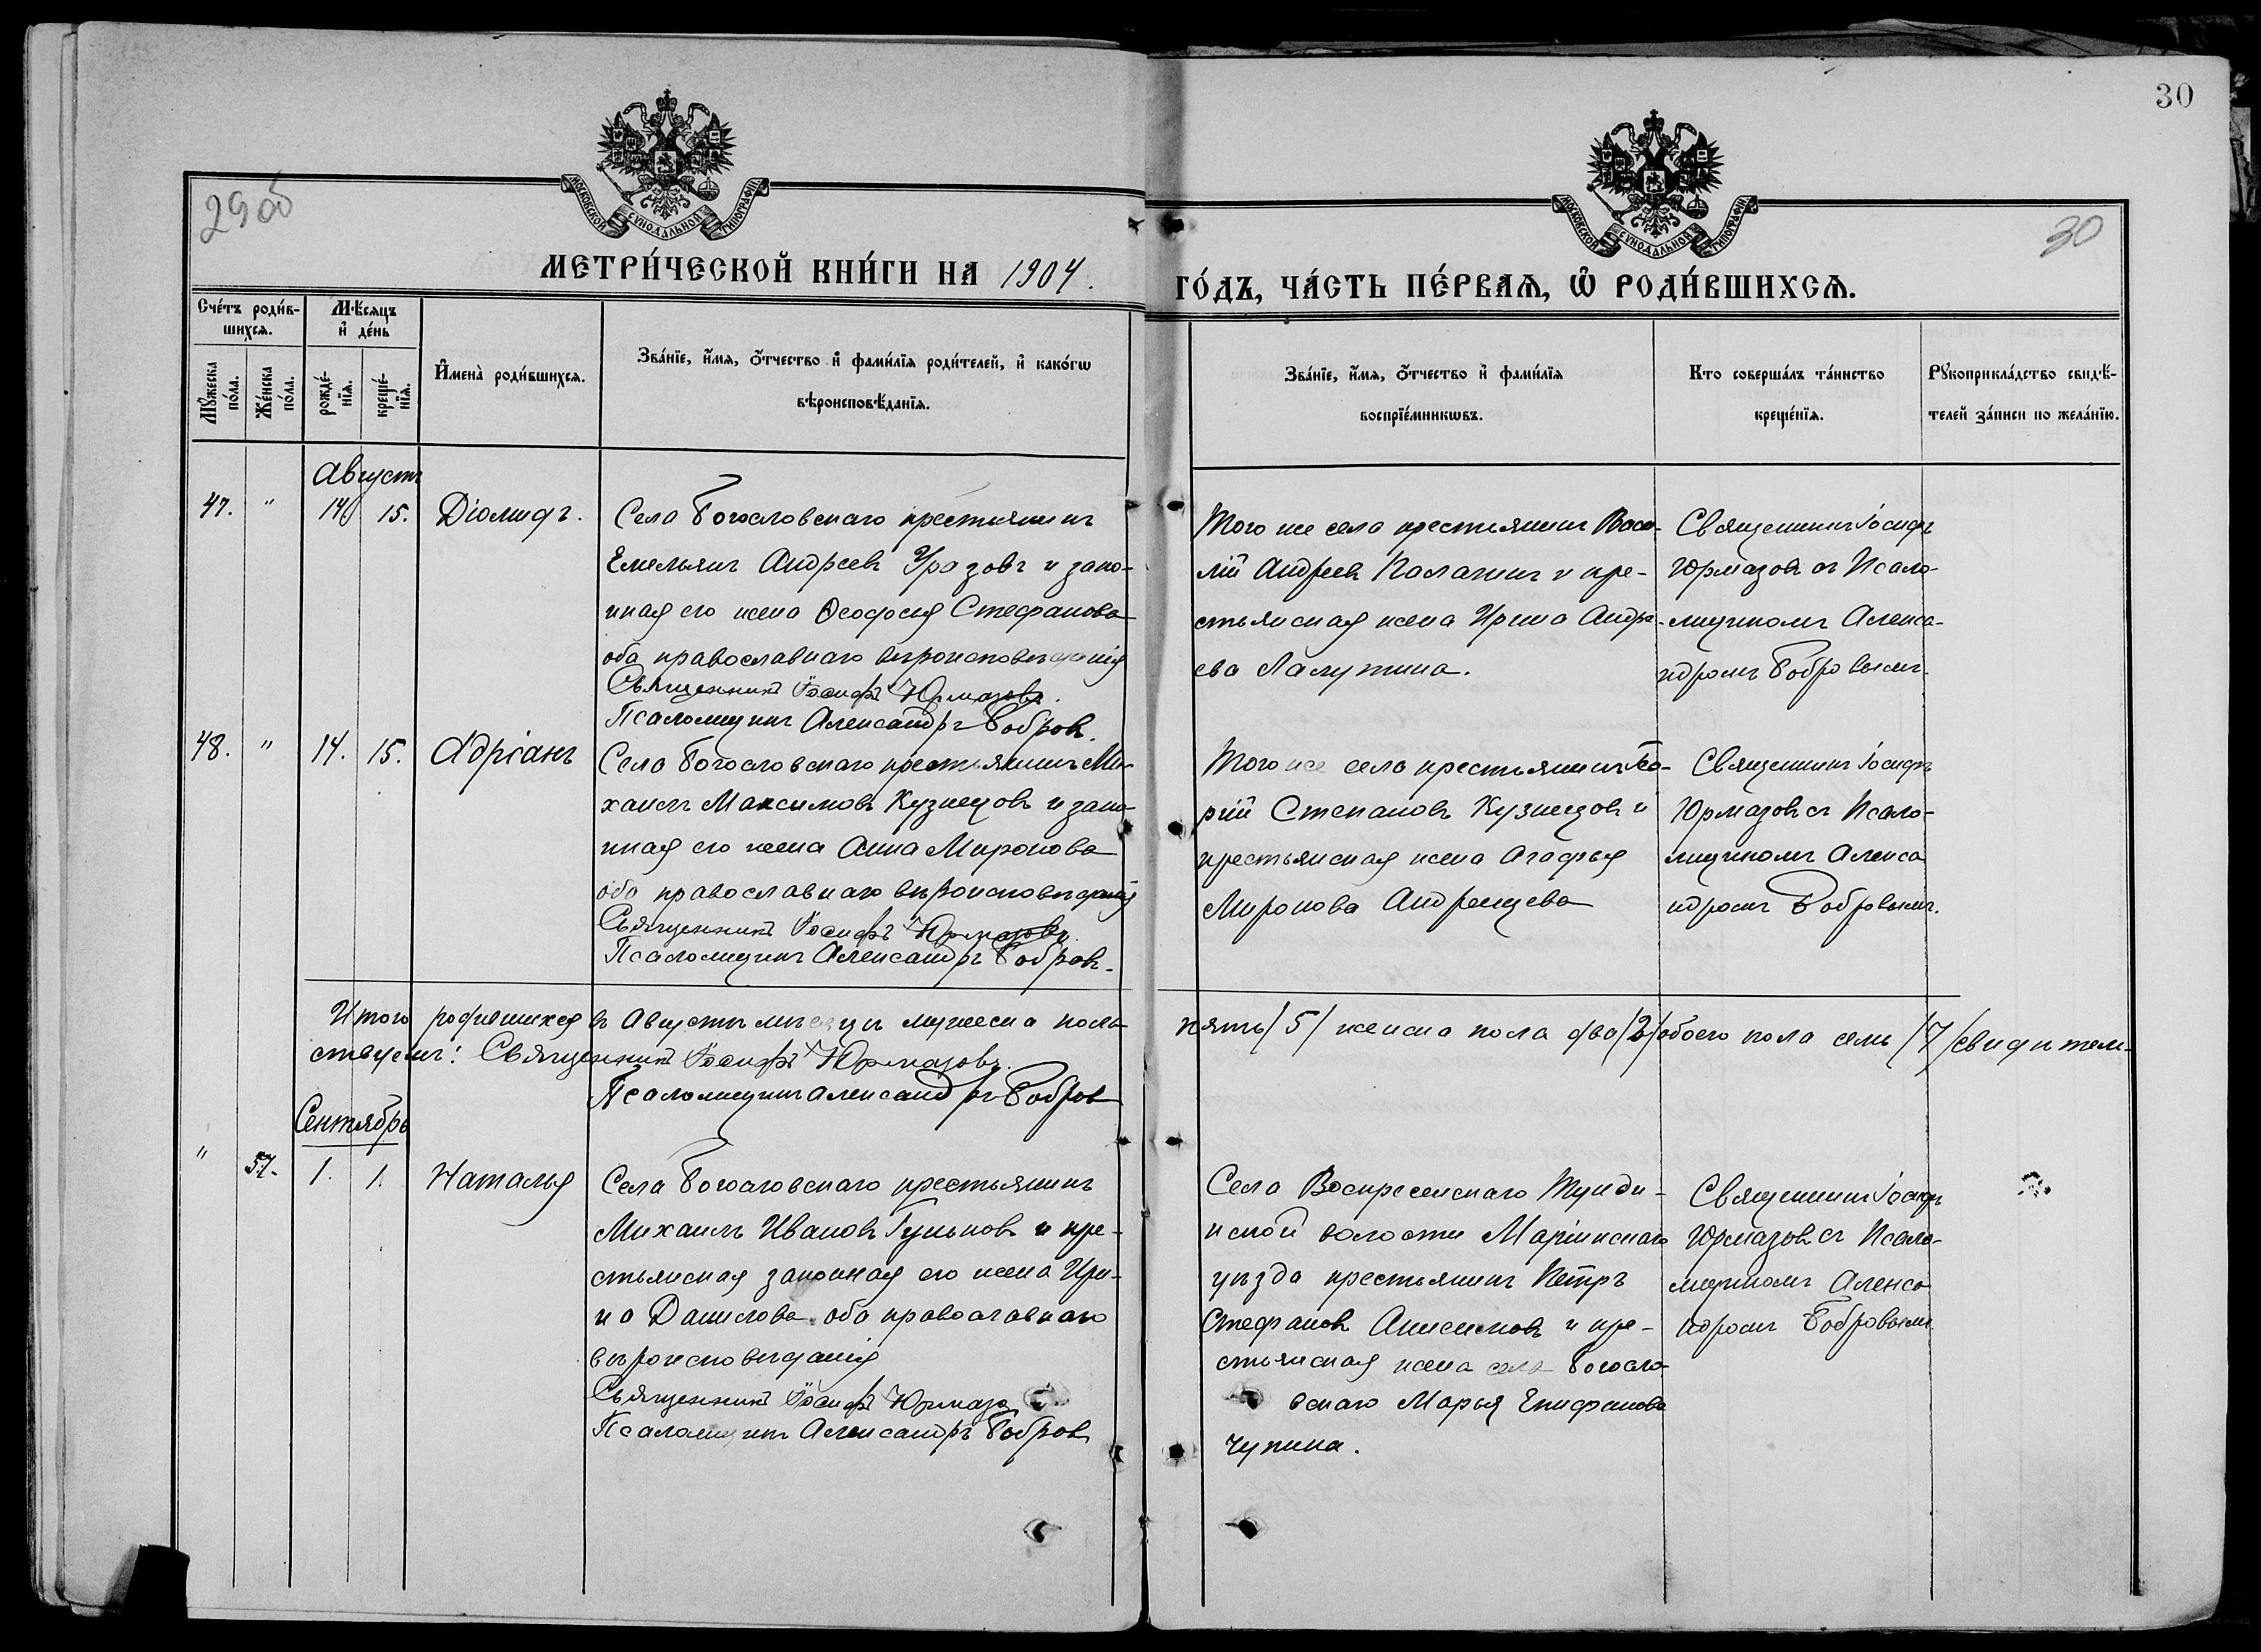 30
29об
30
МОСКОВСКОЙ СѴНОДАЛЬНОЙ ТИПОГРАФІИ
МОСКОВСКОЙ СѴНОДАЛЬНОЙ ТИПОГРАФІИ
МЕТРИ́ЧЕСКОЙ КНИ́ГИ НА 1904.
ГО́ДЪ, ЧА́СТЬ ПЕ́РВАѦ, Ѡ҆ РОДИ́ВШИХСѦ.
Сче́тъ роди́в-
шихсѧ.
Мѣ́сѧцъ
и҆ де́нь
Мꙋ́жеска по́ла.
Же́нска по́ла.
рожде́-
нїѧ.
креще́-
нїѧ.
И҆мена̀ роди́вшихсѧ.
Зва́нїе, и҆́мѧ, ѻ҆́тчество и҆ фами́лїѧ роди́телей, и҆ како́гѡ
вѣроисповѣ́данїѧ.
Зва́нїе, и҆́мѧ, ѻ҆́тчество и҆ фами́лїѧ
воспрїе́мникѡвъ.
Кто соверша́лъ та́инство
креще́нїѧ.
Рꙋкоприкла́дство свидѣ́-
телей за́писи по жела́нїю.
Августъ
47. " 14 15. Діомидъ.
Села Богословскаго крестьянинъ
Емельянъ Андреевъ Уразовъ и зако-
нная его жена Ѳеофосія Стефанова
оба православнаго вѣроисповѣданія
Священникъ Іосифъ Юрмазовъ.
Псаломщикъ Александръ Бобровъ.
Того же села крестьянинъ
лій Андреевъ Калакинъ и кре-
стьянская жена Ирина Андре-
ева Лапутина.
Священникъ Іосифъ
Юрмазовъ съ Псало-
мщикомъ Алекса-
ндромъ Бобровымъ.
48. " 14. 15. Адріанъ
Села Богословскаго крестьянинъ Ми-
хаилъ Максимовъ Кузнецовъ и зако-
нная его жена Анна Миронова
оба православнаго вѣроисповѣданія
Священникъ Іосифъ Юрмазовъ
Псаломщикъ Александръ Бобровъ.
Того же села крестьянинъ Гео-
ргій Степановъ Кузнецовъ и
крестьянская жена Агафья
Миронова Андреищева
Священникъ Іосифъ
Юрмазовъ съ Псало-
мщикомъ Алекса
ндромъ Бобровымъ.
Итого родившихся въ Августѣ мѣсяцѣ мужеска пола пять /5/ женска пола два /2/ обоего пола семь /7/ свидѣтель-
ствуемъ: Священникъ Іосифъ Юрмазовъ.
Псаломщикъ Александръ Бобровъ
Сентябрь
" 57. 1. 1. Наталья
Села Богословскаго крестьянинъ
Михаилъ Ивановъ Гуньковъ и кре-
стьянская законная его жена Ири-
на Данилова оба православнаго
вѣроисповѣданія
Священникъ Іосифъ Юрмазо
Псаломщикъ Александръ Бобровъ
Села Воскресенскаго Тунди-
нской волости Маріинскаго
уѣзда крестьянинъ Петръ
Стефановъ Анисимовъ и кре-
стьянская жена села Богосло-
вскаго Марья Епифанова
Чупина.
Священникъ Іосифъ
Юрмазовъ съ Псало-
мщикомъ Алекса
ндромъ Бобровымъ